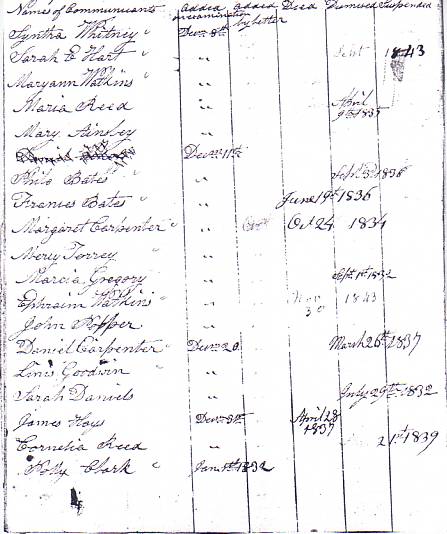 Names of Communicants " Added on examination Added by letter Died Dismissed Suspended
Syntha Whitney " Decm 8th
Sarah E Hart " Sept 1843
Maryann Watkins " "
Maria Reed " April 9th 1835
Mary Ainsley "
Decm 11th
Philo Bates " " Sept 3d 1836
Frances Bates " " June 19th 1836
Margaret Carpenter " " Oct 24 1834
Avery Torrey " "
Marcia Gregory " Sept 1st 1832
Ephraim Watkins " " Nov 30 1843
John Hopper "
Daniel Carpenter " Decm 20 March 26th 1837
Linis Goodwin " "
Sarah Daniels " July 29th 1832
James Hoys Decm 31st April 28 1837
Cornelia Reed " 21st 1839
Polly Clark " Jan 1st 1832